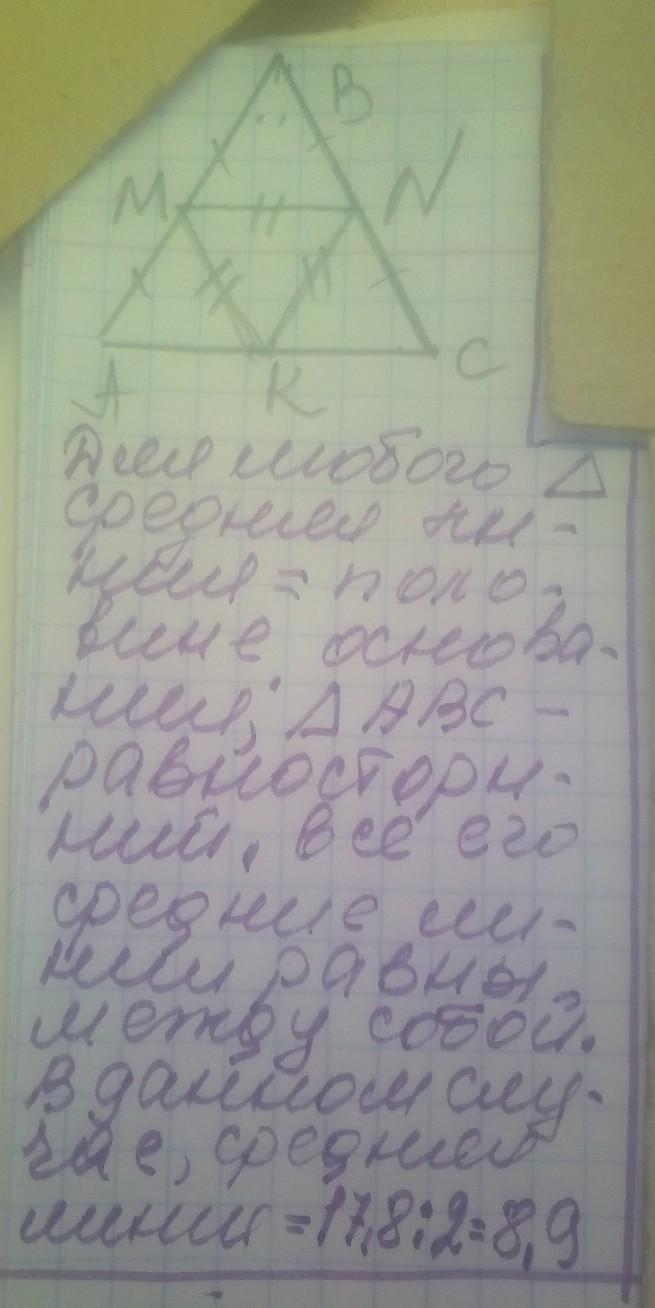 B
M N
A K C
Для любого △
средняя ли-
ния = поло-
вине основа-
ния; △ ABC -
равносторн-
ний. все его
средние ли-
нии равны
между собой.
В данном слу-
чае, средняя
линия = 17,8:2=8,9